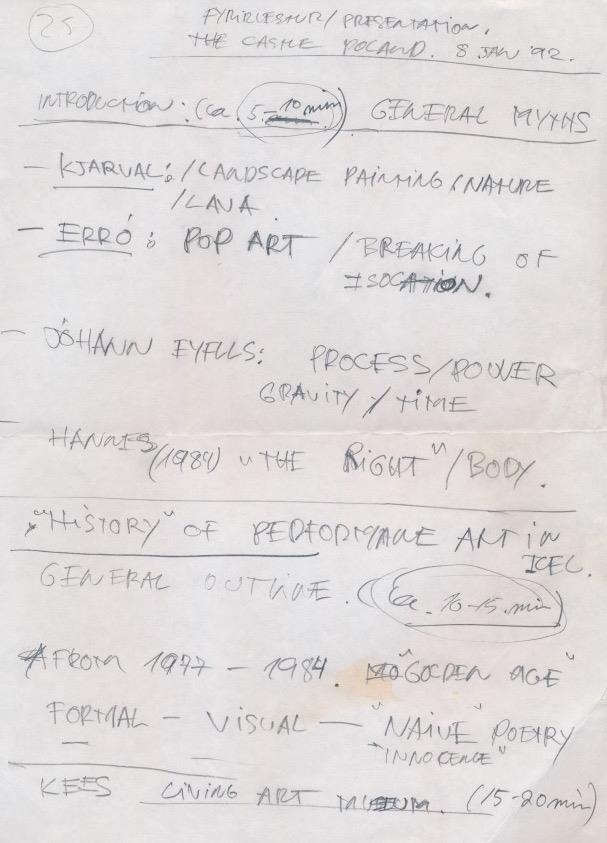 25
FYRIRLESTUR/PRESENTATION.
THE CASTLE POLAND. 8 JAN '92.
INTRODUCTION: (ca. 5-10 min) GENERAL MYTHS
- KJARVAL: /LANDSCAPE PAINTING/NATURE
/LAVA
- ERRÓ: POP ART / BREAKING OF
ISOLATION.
- JÓHANN EYFELLS: PROCESS/POWER
GRAVITY/TIME
- HANNES (1984) "THE RIGHT"/BODY.
"HISTORY" OF PERFORMANCE ART IN
ICEL.
GENERAL OUTLINE. (ca. 10-15. min)
FROM 1977 - 1984. "GOLDEN AGE"
FORMAL - VISUAL - "NAIVE" POETRY
"INNOCENCE"
KEES LIVING ART MUSEUM. (15-20 min)